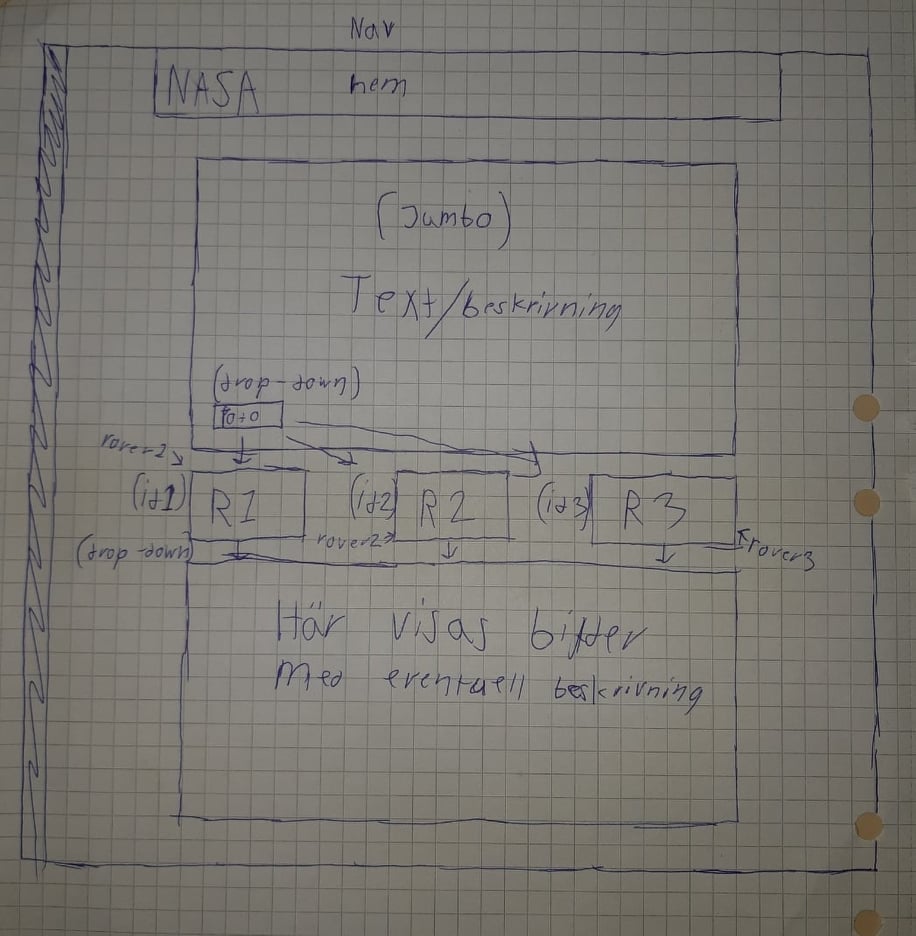 Nav
NASA hem
(Jumbo)
Text/beskrivning
(drop-down)
(id1) R1 (id2) R2 (id3) R3
rover2 rover3
(drop-down)
Här visas bilder
Med eventuell beskrivning